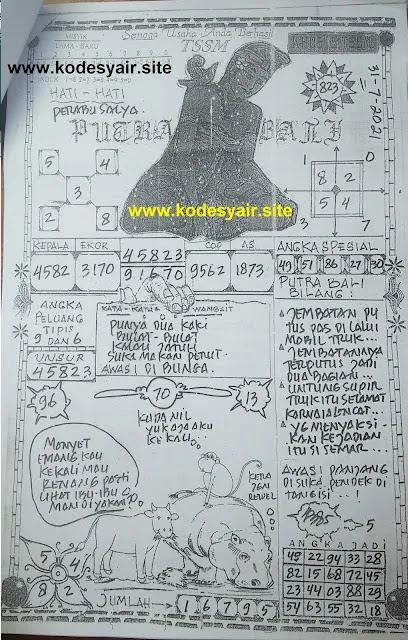 Semoga Usaha Anda Berhasil
TSSM
MISTIK
LAMA - BARU
www.kodesyair.site
HATI - HATI
823
31-7-2021
PUTRA BALI
5
4
3
2
8
1
0
8 2
5 4
3
7
www.kodesyair.site
KEPALA EKOR
4582 3170
45823
91670
COP AS
9562 1873
ANGKA SPESIAL
49 57 86 27 30
ANGKA
PELUANG
TIPIS
9 DAN 6
UNSUR
45823
KATA-KATA WANGSIT
PUNYA DUA KAKI
BULAT-BULAT
KALAU JATUH
SUKA MAKAN PERUT.
AWAS! DI BUNGA.
PUTRA BALI
BILANG:
JEMBATAN PU
TUS PAS DI LALUI
MOBIL TRUK...
JEMBATANNYA
TERPUTUS JADI
DUA BAGIAN...
UNTUNG SUPIR
TRUK ITU SELAMAT
KARNA IA LONCAT...
YG MENYAKSI-
KAN KEJADIAN
ITU SI SEMAR...
AWAS! PANJANG
DI SUKA PENDEK DI
TANGISI...!
5
96
70
13
KUDA NIL
YUK AJA AKU
KE KALI...
MONYET
EMANG KAU
KE KALI MAU
RENANG PASTI
LIHAT IBU-IBU
MANDI YA KAN?
5
4
8
2
JUMLAH
1 6 7 9 5
ANGKA JADI
45 22 94 33 28
82 15 68 72 45
23 44 03 88 29
54 63 55 32 18